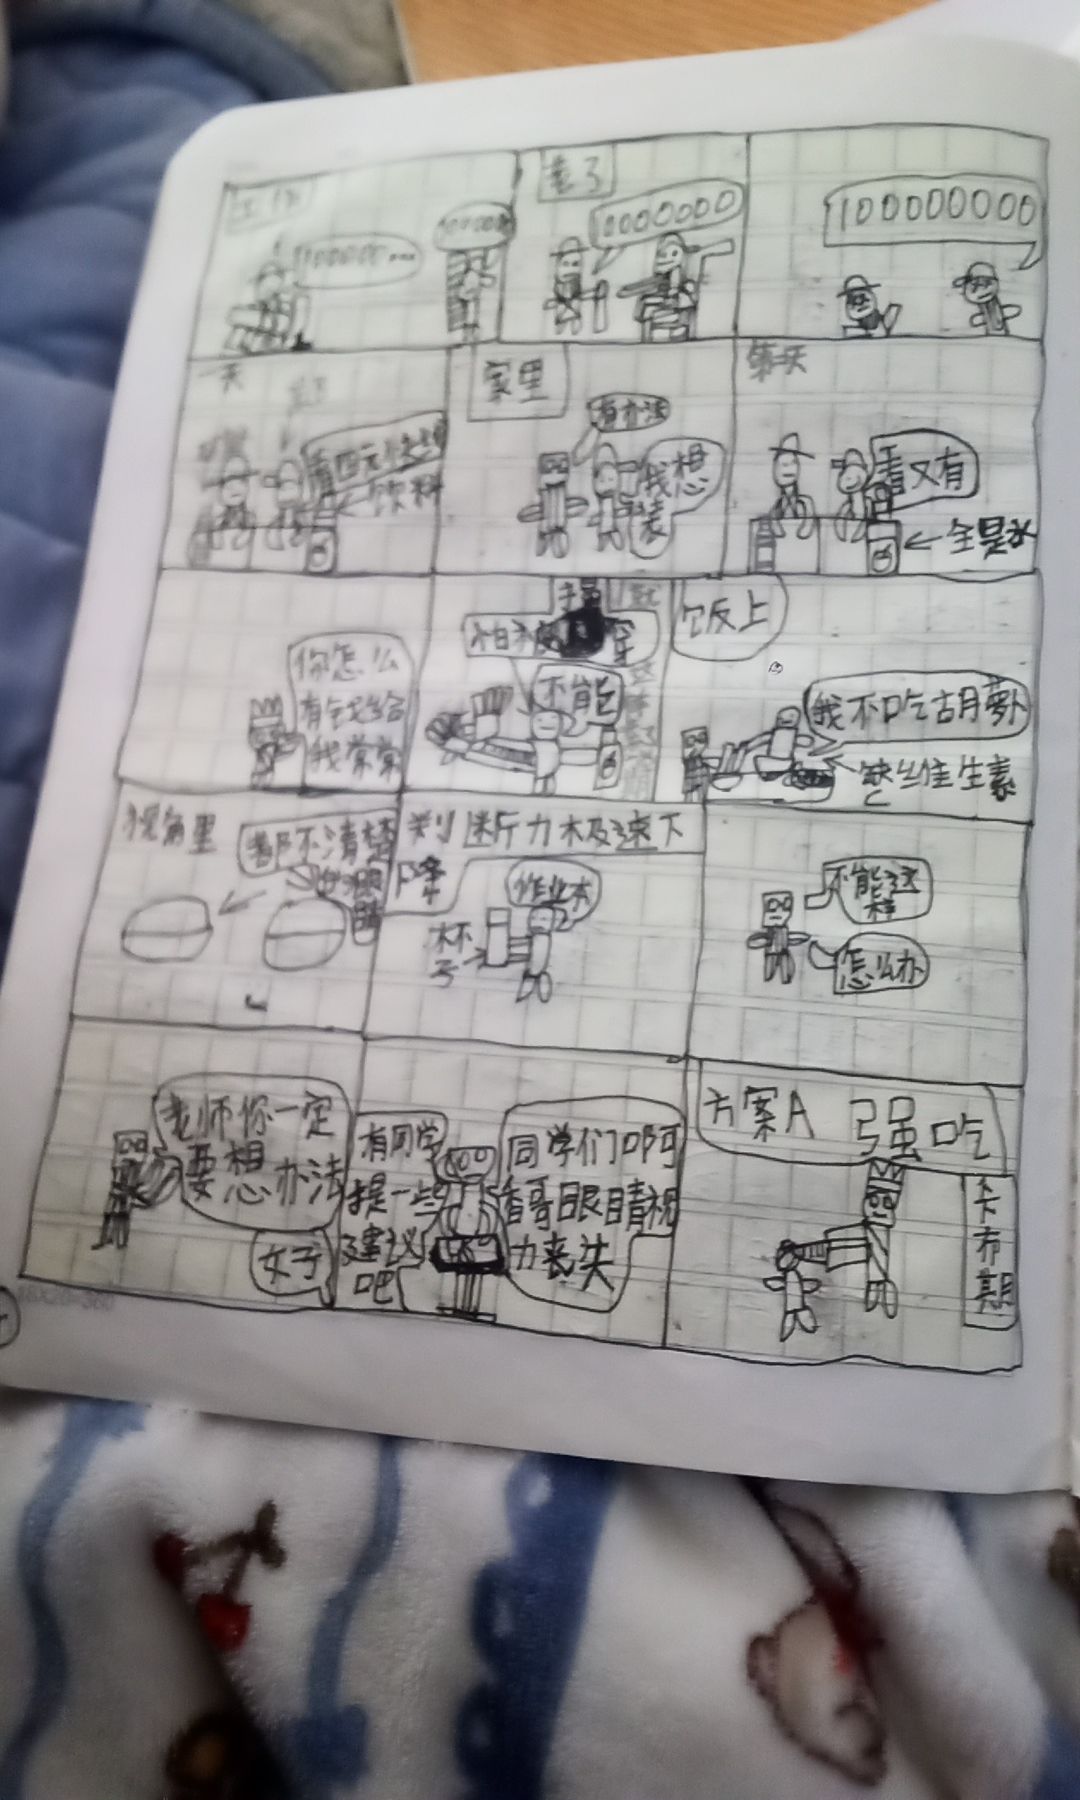 工作
100000...
100000
老了
10000000
100000000
一天
看四元快乐
饮料
家里
有办法
我想
装
第二天
看又有
全是水
你怎么
有钱给
我常常
不能
饭上
我不吃胡萝卜
缺维生素
视角里
都不清楚
判断力极速下
降
作业本
杯
子
不能这
样
怎么办
老师你一定
要想办法
好
有同学
提一些
建议
吧
同学们啊阿
哥眼睛视
力丧失
方案A 强吃
卡
布
期